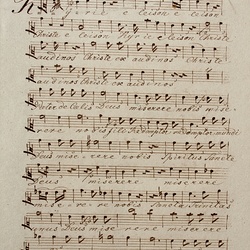 Kyrie eleison eleison
Christe eleison Kyrie eleison Christe
audinos Christe ex audinos Christe
audinos Christe ex audinos
Pater de Coelis Deus miserere nobis mise=
rere nobis fili Redemptor mundi
Deus miserere nobis Spiritus Sancte
Deus miserere miserere
miserere nobis Sancta trinitas
unus Deus miserere miserere